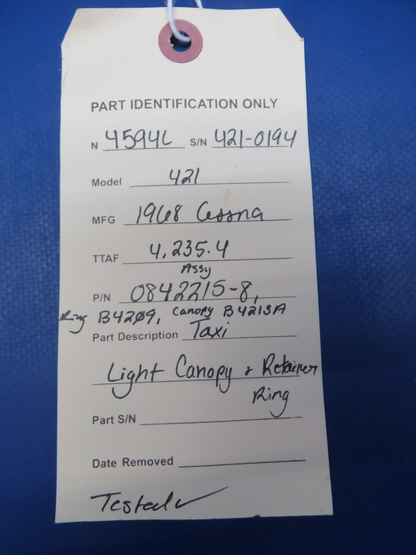 PART IDENTIFICATION ONLY
N 4594L S/N 421-0194
Model 421
MFG 1968 Cessna
TTAF 4,235.4
Assy
P/N 0842215-8,
Ring B4209, Canopy B4213A
Part Description Taxi
Light Canopy & Retainer
Ring
Part S/N
Date Removed
Tested ✓